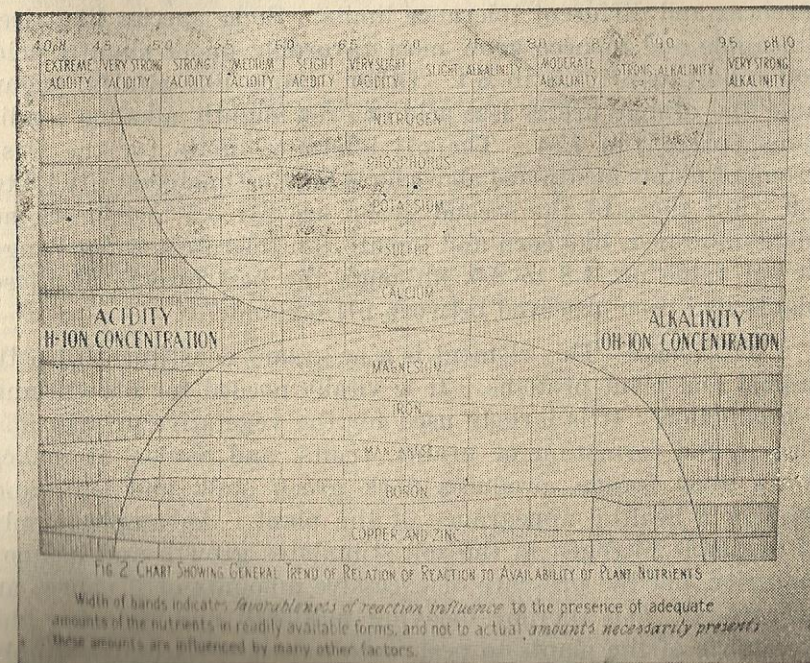 4.0 pH 4.5 5.0 5.5 6.0 6.5 7.0 7.5 8.0 8.5 9.0 9.5 pH 10
EXTREME ACIDITY VERY STRONG ACIDITY STRONG ACIDITY MEDIUM ACIDITY SLIGHT ACIDITY VERY SLIGHT ACIDITY SLIGHT ALKALINITY MODERATE ALKALINITY STRONG ALKALINITY VERY STRONG ALKALINITY
NITROGEN
PHOSPHORUS
POTASSIUM
SULFUR
CALCIUM
ACIDITY
H-ION CONCENTRATION
ALKALINITY
OH-ION CONCENTRATION
MAGNESIUM
IRON
MANGANESE
BORON
COPPER AND ZINC
FIG. 2 CHART SHOWING GENERAL TREND OF RELATION OF REACTION TO AVAILABILITY OF PLANT NUTRIENTS
Width of bands indicates favorableness of reaction influence to the presence of adequate
amounts of the nutrients in readily available forms, and not to actual amounts necessarily present;
these amounts are influenced by many other factors.